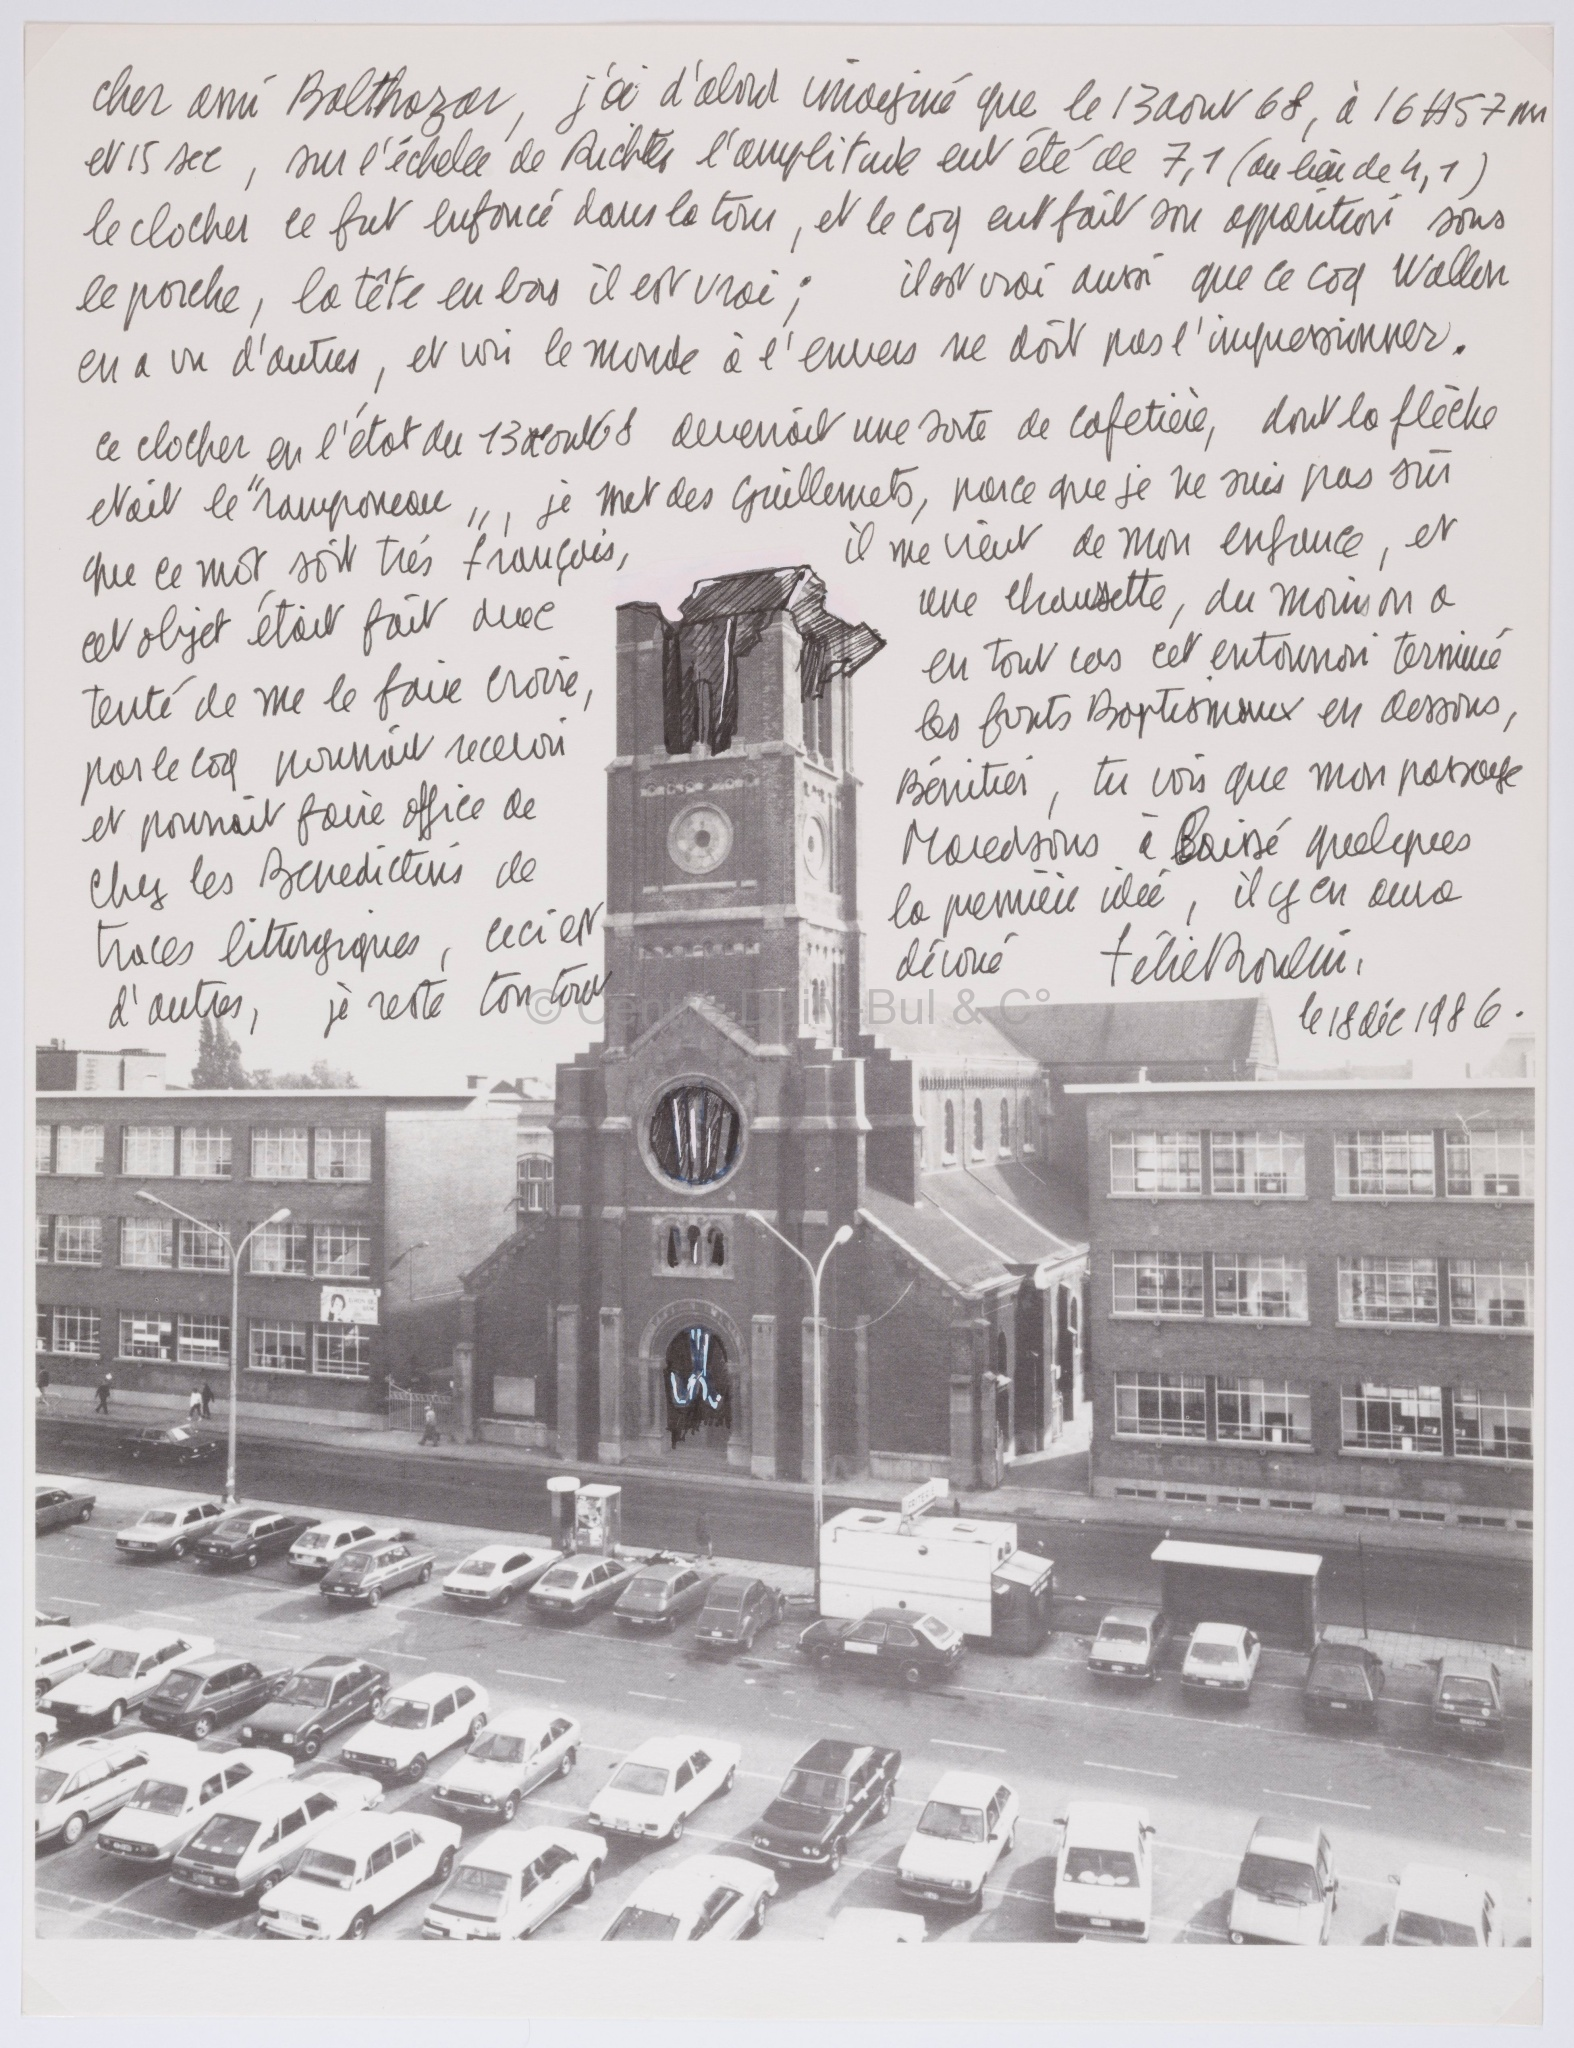 cher ami Balthazar, j'ai d'abord imaginé que le 13 aout 68, à 16H57 mn
et 15 sec, sur l'échelle de Richter l'amplitude eut été de 7,1 (au lieu de 4,1)
le clocher se fut enfoncé dans la tour, et le coq eut fait son apparition sous
le porche, la tête en bas il est vrai ; il est vrai aussi que ce coq Wallon
en a vu d'autres, et voir le monde à l'envers ne doit pas l'impressionner.
ce clocher en l'état du 13 aout 68 devenait une sorte de cafetière, dont la flèche
etait le "ramponeau", je met des Guillemets, parce que je ne suis pas sûr
que ce mot soit très français, il me vient de mon enfance, et
cet objet était fait avec une chaussette, du moins on a
tenté de me le faire croire, en tout cas cet entonnoir terminé
par le coq pourrait recevoir les fonts Baptismaux en dessous,
et pourrait faire office de Bénitier, tu vois que mon passage
chez les Benedictins de Maredsous à laissé quelques
traces litturgiques, ceci est la première idée, il y en aura
d'autres, je reste ton tout dévoué Félix Roulin.
le 18 déc 1986.
© Centre Daily-Bul & C°